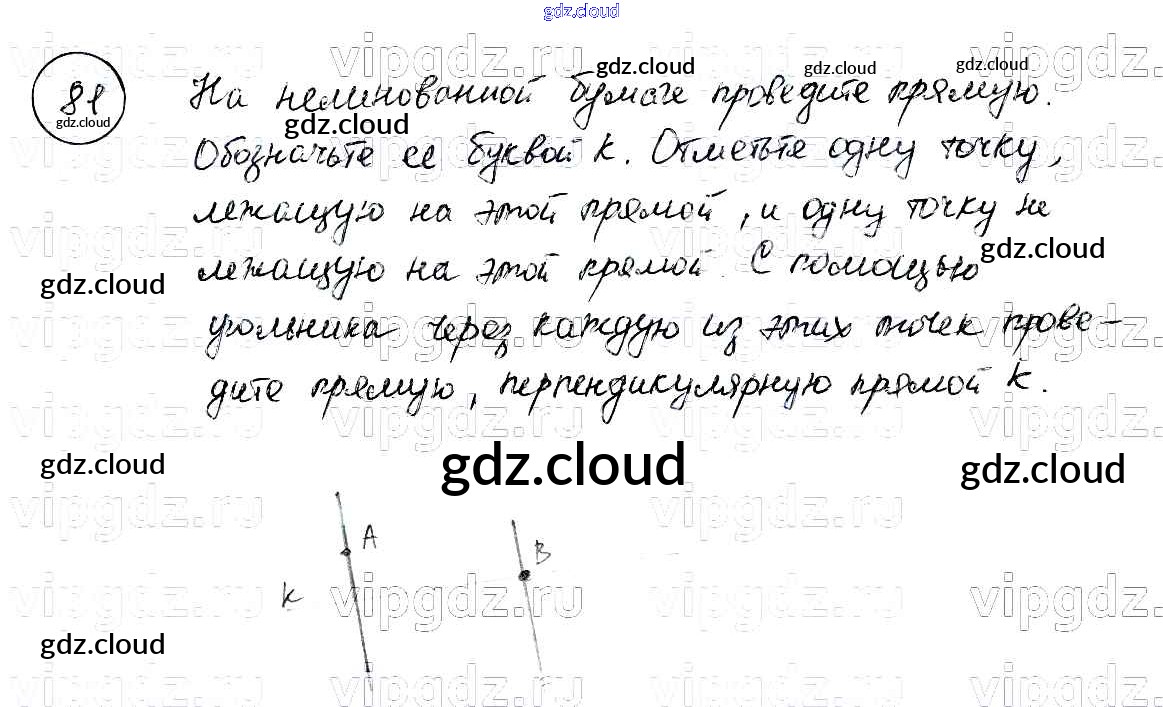 gdz.cloud
81
gdz.cloud
На нелинованной бумаге проведите прямую.
gdz.cloud gdz.cloud gdz.cloud
gdz.cloud
Обозначьте ее буквой k. Отметьте одну точку,
лежащую на этой прямой, и одну точку не
gdz.cloud
лежащую на этой прямой. С помощью
gdz.cloud
угольника через каждую из этих точек прове-
дите прямую, перпендикулярную прямой k.
gdz.cloud gdz.cloud gdz.cloud
A
B
k
gdz.cloud
vipgdz.ru vipgdz.ru vipgdz.ru vipgdz.ru